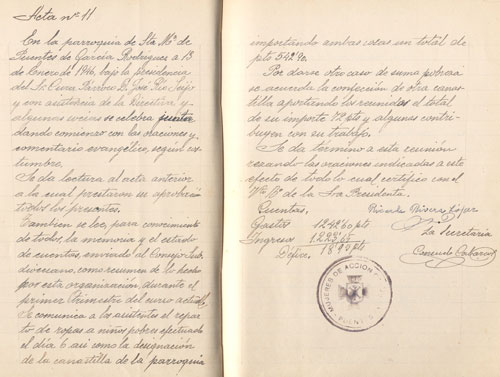 Acta nº 11
En la parroquia de Sta Mª de
Puentes de García Rodríguez a 13
de Enero de 1946, bajo la presidencia
del Sr. Cura Párroco D. José Pío Seijo
y con asistencia de la Directiva y
algunas socias se celebra junta
dando comienzo con las oraciones y
comentario evangélico, según cos-
tumbre.
Se da lectura al acta anterior
a la cual prestaron su aprobación
todos los presentes.
Tambien se lee, para conocimiento
de todos, la memoria y el estado
de cuentas, enviado al Consejo
diocesano, como resumen de lo hecho
por esta organización, durante el
primer Trimestre del curso actual.
Se comunica a las asistentes el repar
to de ropas a niños pobres efectuado
el día 6 así como la designación
de la canastilla de la parroquia
importando ambas cosas un total de
pts 542'90.
Por darse otro caso de suma pobreza
se acuerda la confección de otra canas-
tilla aportando los reunidos el total
de su importe y algunas contri-
buyen con su trabajo.
Se da término a esta reunión
rezando las oraciones indicadas a este
efecto de todo lo cual certifico con el
Vº Bº de la Sra Presidenta.
Cuentas.
Gastos 1242'60 pts
Ingresos 1223'65
Défice 18'95 pts
La Secretaria
Consuelo
MUJERES DE ACCION
PUENTES